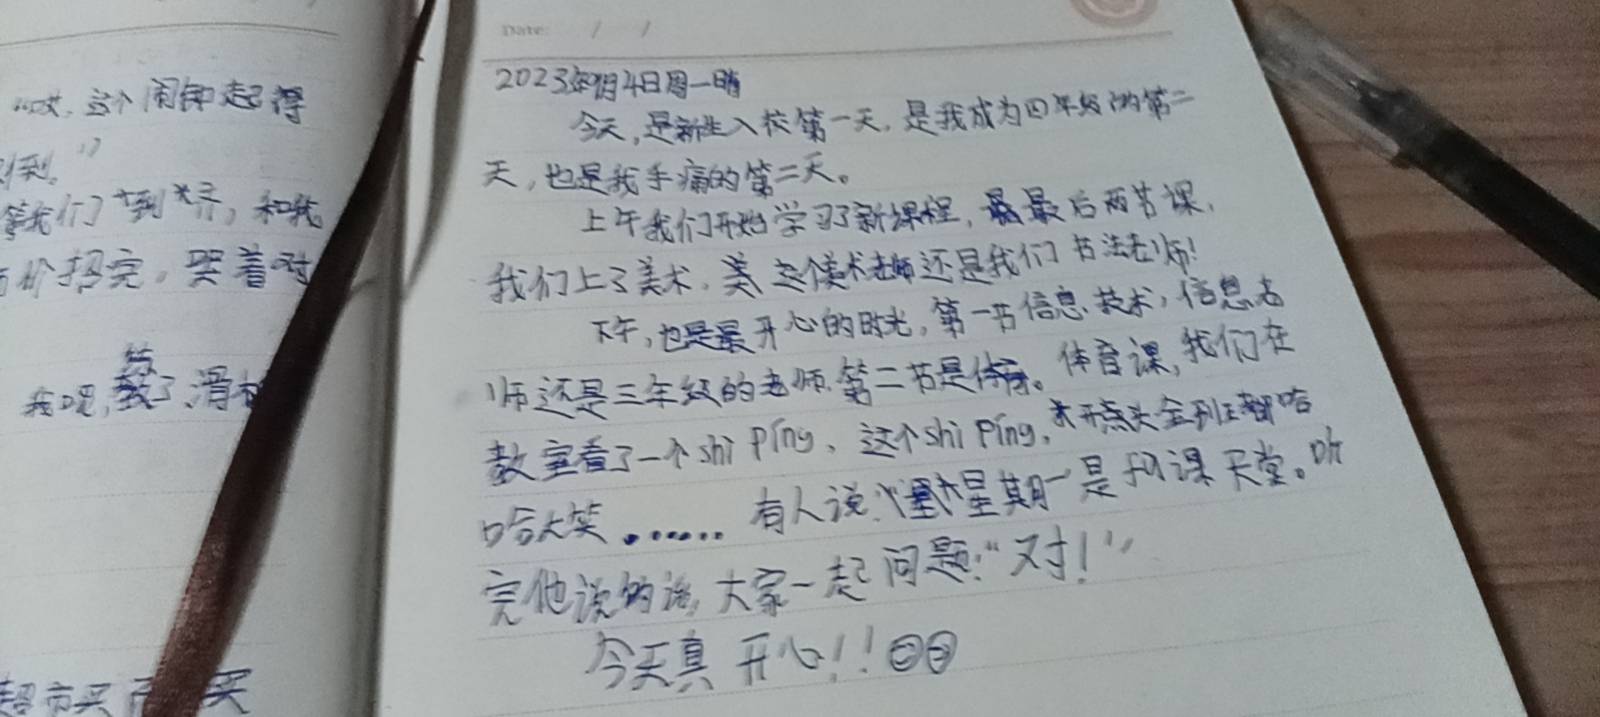 这个闹钟起得
到。”
等我们
，和我
完，哭着对
我呢，
滑
超市买
买
Date: / /
2023年9月4日周一晴
今天，是新生入校第一天，是我成为四年级的第二
天，也是我手痛的第二天。
上午我们开始学习了新课程，最后两节课，
我们上了美术，这个美术老师还是我们书法老师！
下午，也是最开心的时光，第一节信息技术，信息老
师还是三年级的老师，第二节是体育。体育课，我们在
教室看了一个shi pín，这个shi píng，开头全班都哈
哈大笑……有人说：“星期一是网课天堂。听
完他说的话，大家一起问题：“对！”
今天真开心！！